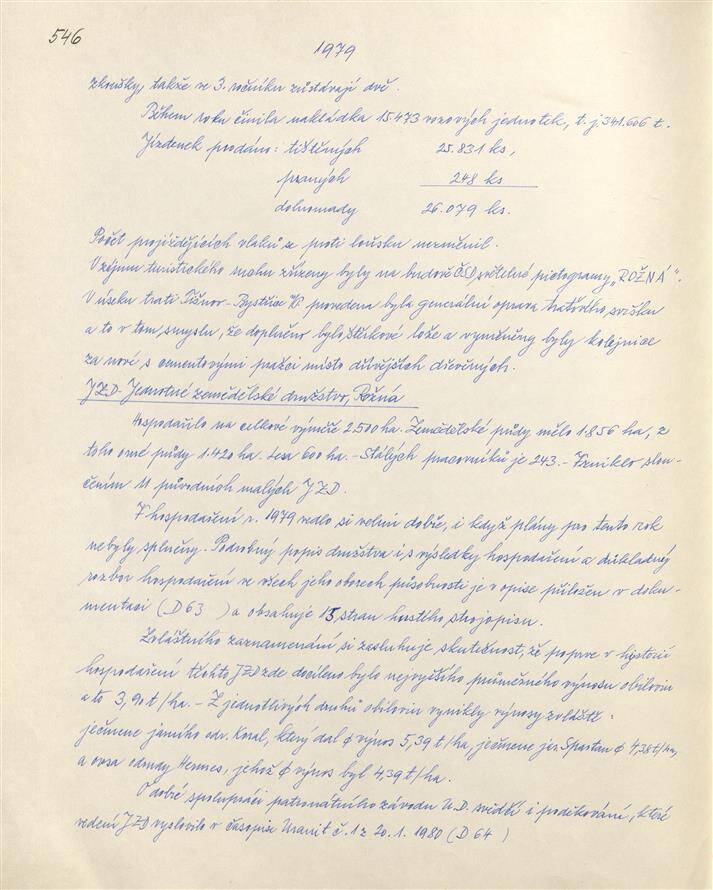 546
1979
zkoušky, takže ve 3. ročníku zůstávají dvě.
Během roku činila nakládka 15473 vozových jednotek, t. j. 341.606 t.
Jízdenek prodáno: tištěných 25.831 ks,
psaných 248 ks
dohromady 26.079 ks.
Počet projíždějících vlaků se proti loňsku nezměnil.
V zájmu turistického ruchu zřízeny byly na budově ČSD světelné pictogramy „ROŽNÁ“.
V úseku trati Tišnov - Bystřice n/P. provedena byla generální oprava traťového svršku
a to v tom smyslu, že doplněno bylo štěrkové lože a vyměněny byly kolejnice
za nové s cementovými pražci místo dřívějších dřevěných.
JZD - Jednotné zemědělské družstvo, Rožná
Hospodařilo na celkové výměře 2500 ha. Zemědělské půdy mělo 1.856 ha, z
toho orné půdy 1.420 ha. Lesa 600 ha. - Stálých pracovníků je 243. - Vzniklo slou-
čením 11 původních malých JZD.
V hospodaření r. 1979 vedlo si velmi dobře, i když plány pro tento rok
nebyly splněny. Podrobný popis družstva i s výsledky hospodaření a důkladný
rozbor hospodaření ve všech jeho oborech působnosti je v opise přiložen v doku-
mentaci (D 63 ) a obsahuje 15 stran hustého strojopisu.
Zvláštního zaznamenání si zasluhuje skutečnost, že poprvé v historii
hospodaření těchto JZD zde docíleno bylo nejvyššího průměrného výnosu obilovin
a to 3,90 t/ha. - Z jednotlivých druhů obilovin vynikly výnosy zvláště:
ječmene jarního odr. Koral, který dal ϕ výnos 5,39 t/ha, ječmene jar. Spartan ϕ 4,36 t/ha,
a ovsa odrudy Hermes, jehož ϕ výnos byl 4,39 t/ha.
O dobré spolupráci patronátního závodu U. D. svědčí i poděkování, které
vedení JZD vyslovilo v časopise Uranit č. 1 z 20. 1. 1980 (D 64 )